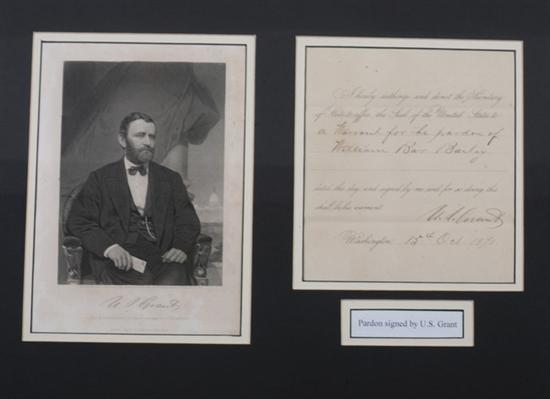 I hereby authorize and direct the Secretary
of State to affix the Seal of the United States to
a Warrant for the pardon of
William
dated this day and signed by me and for so doing this
shall be his warrant.
U.S. Grant
Washington 15th Oct. 187
U. S. Grant
Pardon signed by U.S. Grant